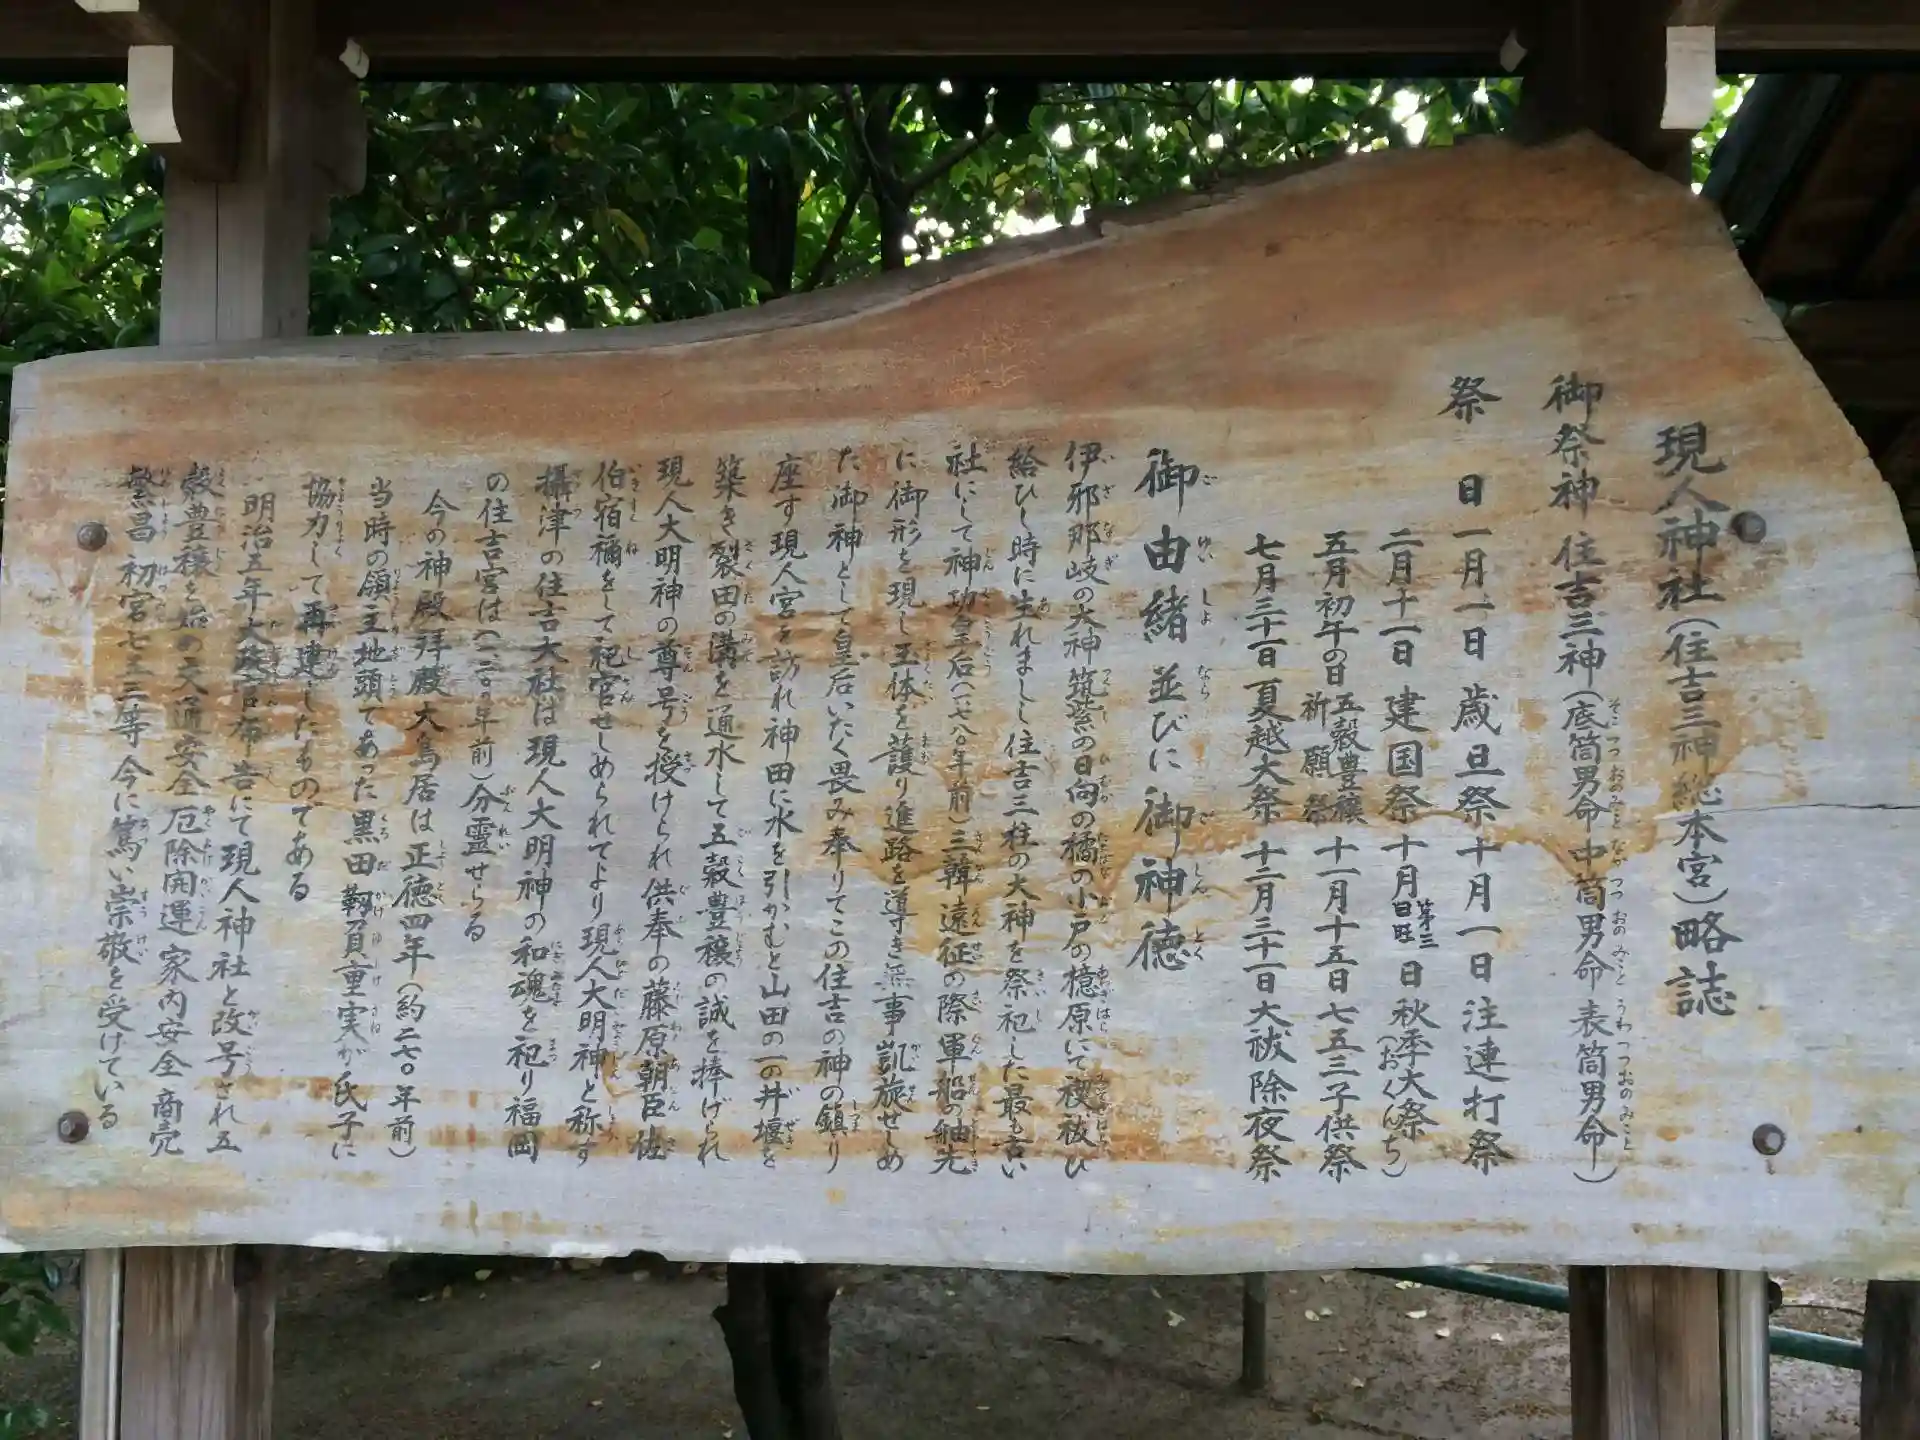 現人神社（住吉三神総本宮）略誌
御祭神 住吉三神（底筒男命中筒男命表筒男命）
祭 日 一月一日 歳旦祭 十月一日 注連打祭
二月十一日 建国祭 十月第三日曜日 秋季大祭（おくんち）
五月初午の日 五穀豊穣祈願祭 十一月十五日 七五三子供祭
七月三十一日 夏越大祭 十二月三十一日 大祓除夜祭
御由緒並びに御神徳
伊邪那岐の大神筑紫の日向の橘の小戸の檍原にて禊祓ひ
給ひし時に生れましし住吉三柱の大神を祭祀した最も古い
社にして神功皇后（一、七八〇年前）三韓遠征の際軍船の舳先
に御形を現し玉体を護り進路を導き無事凱旋せしめ
た御神として皇后いたく畏み奉りてこの住吉の神の鎮り
座す現人宮を訪れ神田に水を引かむと山田の一の井堰を
築き裂田の溝を通水して五穀豊穣の誠を捧げられ
現人大明神の尊号を授けられ供奉の藤原朝臣佐
伯宿禰をして祀官せしめられてより現人大明神と称す
攝津の住吉大社は現人大明神の和魂を祀り福岡
の住吉宮は（一、二〇〇年前）分霊せらる
今の神殿拝殿大鳥居は正徳四年（約二七〇年前）
当時の領主地頭であった黒田靱負重実が氏子に
協力して再建したものである
明治五年大政官布告にて現人神社と改号され五
穀豊穣を始め交通安全厄除開運家内安全商売
繁昌初宮七五三等今に篤い崇敬を受けている